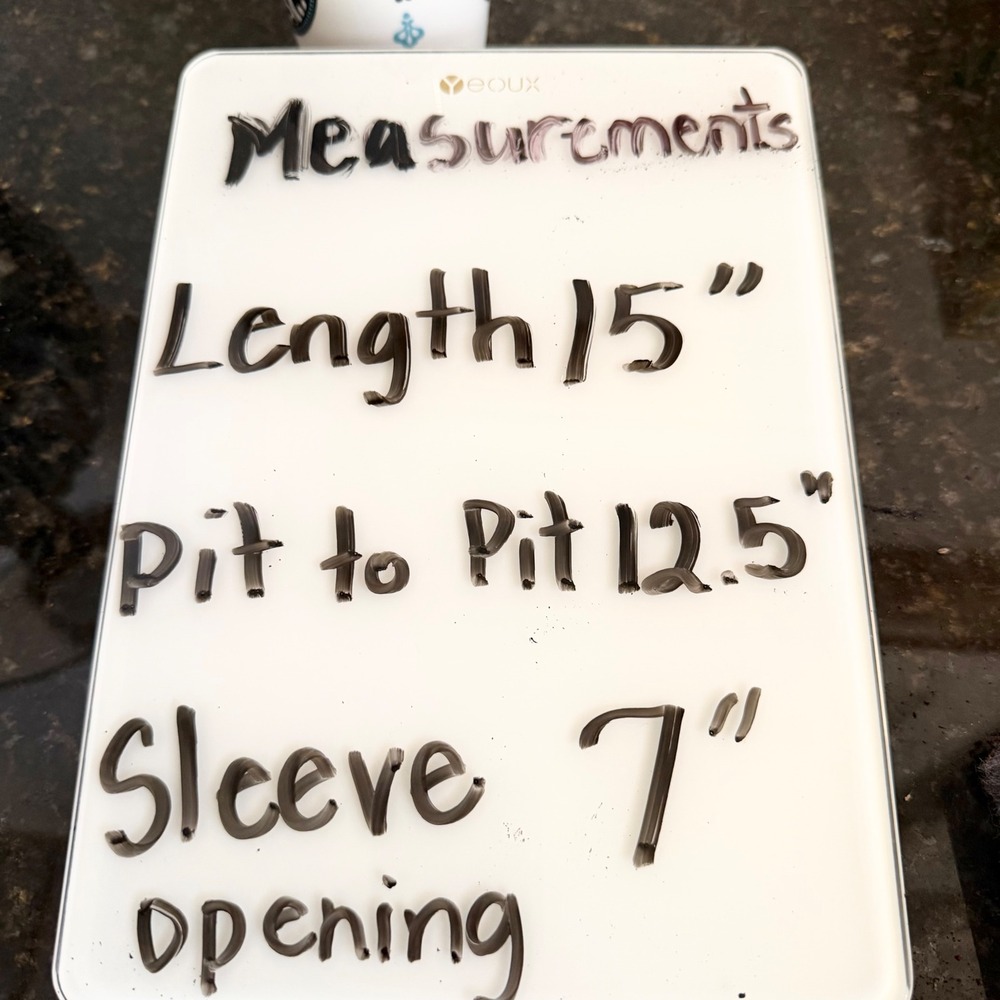 Yeoux
Measurements
Length 15"
Pit to Pit 12.5"
Sleeve 7"
opening